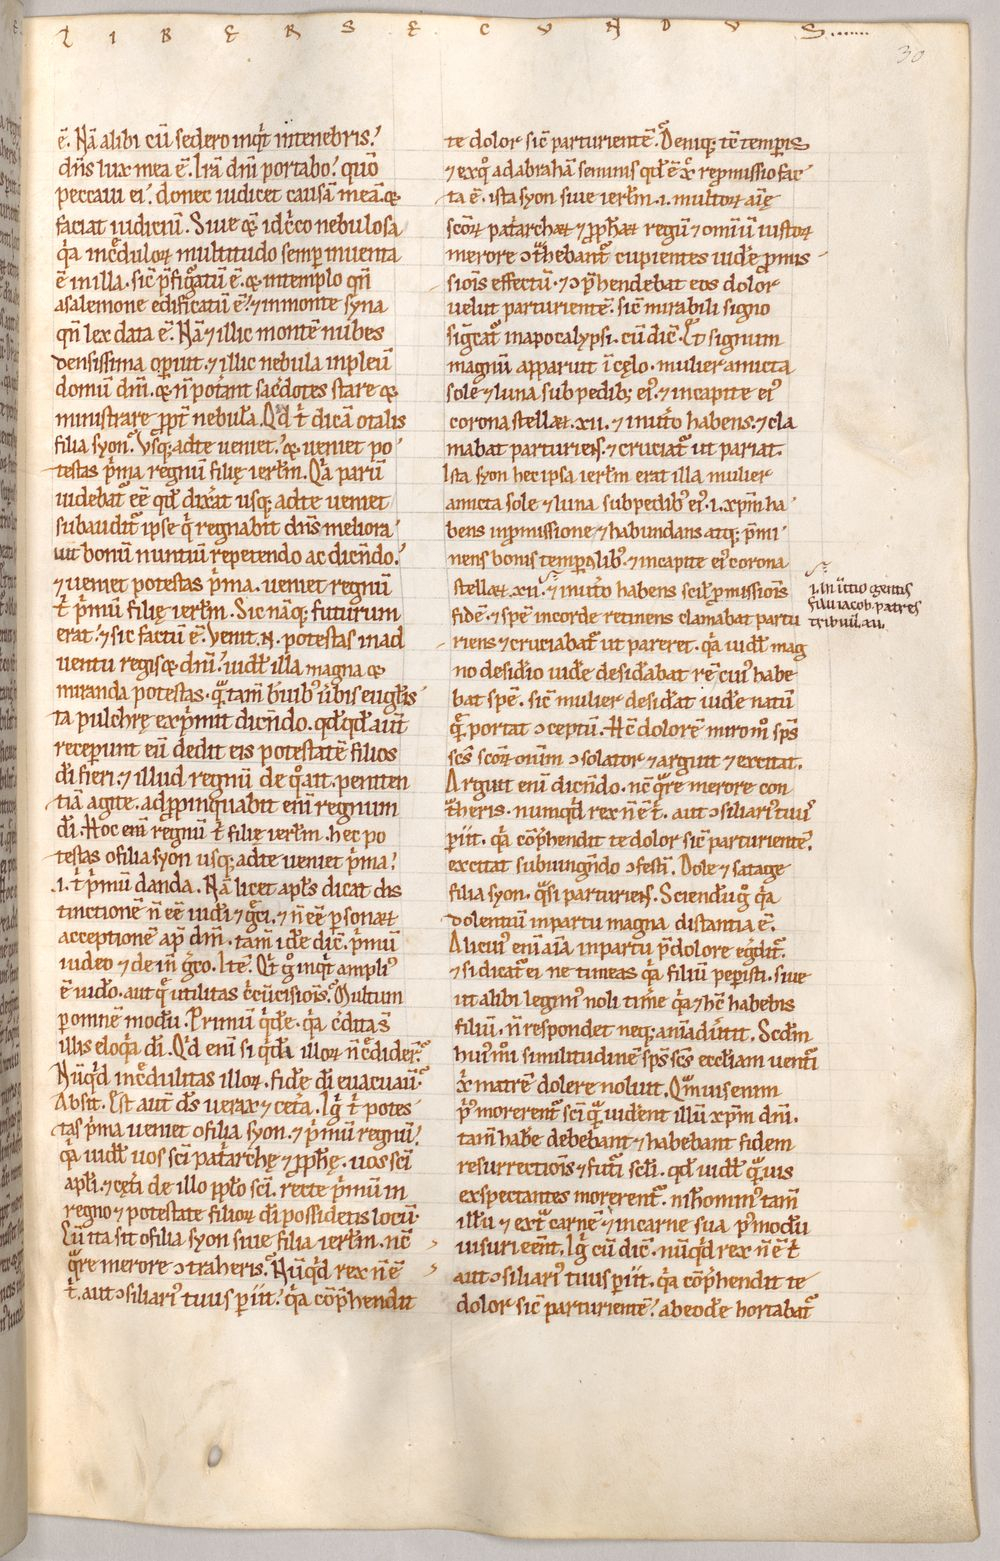 LIBER SECUNDUS......
30
ē. Nā alibi cū sedero inqͥt intenebris?
dn̄s lux mea ē. Irā dn̄i portabo. quō
peccaui ei. donec iudicet causā meā. &
faciat iudiciū. Siue & idc̄co nebulosa
qͥa inc̄duloꝝ multitudo semꝑ inuenta
ē in illa. sic̄ p̄figuratū ē. & intemplo qn̄
asalemone edificatū ē. ⁊ inmonte syna
qn̄ lex data ē. Nā ⁊ illic montē nubes
densissima oꝑuit. ⁊ illic nebula inpleu̅
domū dn̄i. & n̄ potant sac̄dotes stare &
ministrare ꝓpt̄ nebulā. Qd̄ t̄ dicā otalis
filia syon? Usq; adte ueniet. & ueniet po
testas p̊ma regnū filię ierłm. Qͥa parū
uidebat̄ ēē qd̄ dixat usq; adte ueniet
subaudit̄ ipse qͥ regnabit dn̄s meliora
uit bonū nuntiū repetendo ac dicn̄do.
⁊ ueniet potestas p̊ma. ueniet regnū
t̄ p̊mū filię ierłm. Sic nāq; futurum
erat. ⁊ sic factū ē. Venit .N. potestas inad
uentu regis & dn̄i. uidl̄ illa magna &
miranda potestas. quā tam b̄uibꝰ ūbis eug̅łis
ta pulchrę exp̊mit dicn̄do. qd̄qd̄ aut̄
receperunt eū dedit eis potestatē filios
dī fieri. ⁊ illud regnū de qͦ ait. peniten
tiā agite. adꝓpinquabit enī regnum
dī. Hoc enī regnū t̄ filię ierłm. hec po
testas ofilia syon usq; adte ueniet p̊ma.
.i. t̄ p̊mū danda. Nā licet aplꝰs dicat dis
tinctionē n̄ ēē iudi ⁊ gͣci. ⁊ n̄ ēē ꝑsonaꝝ
acceptionē ap̄ dm̄. tam̄ idē dic̄. p̊mū
iudeo ⁊ dein gͣco. Itē. Qͥd gͦ inqͥt ampliꝰ
ē iudo. aut quę utilitas c̄cūcisionis? Multum
ꝑ omnē modū. Primū qͥdē. qͥa c̄dita s̄
illis eloqͥa dī. Qͥd enī si qͥdā illoꝝ n̄ c̄dider̄.
Nūqͥd inc̄dulitas illoꝝ. fidē dī euacuaū?
Absit. Est aut̄ dꝰs uerax ⁊ cetͣ. Igͥ t̄ potes
tas p̊ma ueniet ofilia syon. ⁊ p̊mū regnū.
qͥa uidl̄ uos scī patͥarchę ⁊ ꝓphę. uos scī
aplī. ⁊ cętͥ de illo pplo scī. recte p̊mū in
regno ⁊ potestate filioꝝ dī possidetis locū.
Cū ita sit ofilia syon siue filia ierłm. nc̄
qͣre merore ↄtraheris? Nūqͥd rex n̄ ē
t̄. aut ↄsiliariꝰ tuus ꝑiit. qͥa cōp̄hendit
te dolor sic̄ parturientē? Deniq; tē temꝑis
⁊ exqͦ adabrahā seminis qd̄ ē xͥ repmissio fac
ta ē. ista syon siue ierłm .i. multoꝝ aīę
scoꝝ patͥarchaꝝ ⁊ ꝓphaꝝ regū ⁊ omīū iustoꝝ
merore ↄtͣhebant̄ cupientes uidē ꝓmis
sionis effectū. ⁊ ↄp̄hendebat eos dolor
uelut parturientē. sic̄ mirabili signo
sigͥcat̄ inapocalypsi. cū dic̄. Et signum
magnū apparuit ī cęlo. mulier amicta
solē ⁊ luna subpedibꝰ eiꝰ. ⁊ incapite eiꝰ
corona stellaꝝ .xii. ⁊ inutͦo habens. ⁊ cla
mabat parturiens. ⁊ cruciat̄ ut pariat.
Ista syon hec ipsa ierłm erat illa mulier
amicta sole ⁊ luna subpedibꝰ eiꝰ .i. xp̄m ha
bens inpmissione ⁊ habundans atq; p̄mi
nens bonis temꝑalibꝰ. ⁊ incapite eiꝰ corona
stellaꝝ .xii. ⁊ inutͦo habens scił ꝓmissionis
fidē. ⁊ spē incorde retinens clamabat partu
riens ⁊ cruciabat̄ ut pareret. qͥa uidl̄ mag
no desidͥio uidē desidͣabat rē cuiꝰ habe
bat spē. sic̄ mulier desidͣat uidē natū
quē portat ↄceptū. Hc̄ dolorē miro mͦ sps̄
scs̄ scoꝝ omīum ↄsolator ⁊ arguit ⁊ excitat.
Arguit enī dicn̄do. nc̄ qͣre merore con
tͣheris. numqͥd rex n̄ ē t̄. aut ↄsiliariꝰ tuꝰ
ꝑiit. qͥa cōp̄hendit te dolor sic̄ parturientē?
excitat subiungn̄do ↄfestī. Dole ⁊ satage
filia syon. qͣsi parturiens. Sciendū gͦ qͥa
dolentiū inpartu magna distantia ē.
Alicuiꝰ enī aīa inpartu p̄ dolore egͥdit̄.
⁊ si dicat̄ ei ne timeas qͥa filiū peꝑisti. siue
ut alibi legimꝰ noli timē qͥa ⁊ hc̄ habebis
filiū. n̄ respondet neq; animaduertit. Scd̄m
huiꝰmͦi similitudinē sps̄ scs̄ ecclīam uentͥ
xͥ matrē dolere noluit. Quāuis enim
pͥꝰ morerent̄ scī quā uident illū xp̄m dn̄i.
tam̄ habē debebant ⁊ habebant fidem
resurrectionis ⁊ futͥ sclī. qd̄ uidl̄ quāuis
exspectantes morerent̄. nihominꝰ tam̄
illū ⁊ extͣ carnē ⁊ incarne sua pꝰmodū
uisuri ēēnt. Igͥ cū dic̄. nūqͥd rex n̄ ē t̄
aut ↄsiliariꝰ tuus ꝑiit. qͥa cōp̄hendit te
dolor sic̄ parturientē. abeodē hortabat̄
.i. Initio gentis
filii iacob. patres
tribuū .xii.